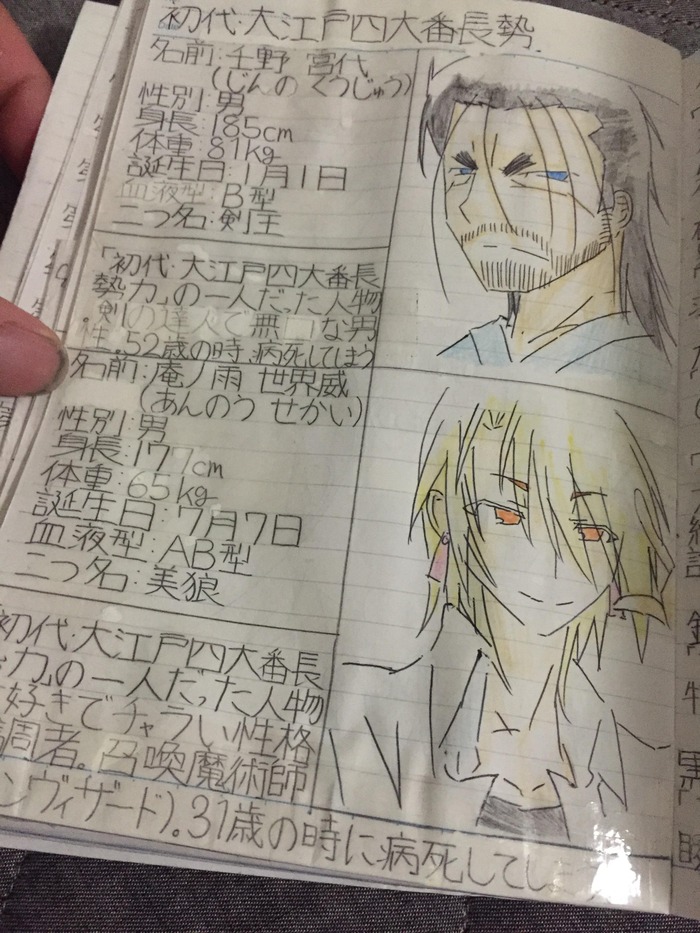 初代・大江戸四大番長勢
名前:壬野 宮代
(じんの くうじゅう)
性別:男
身長:185cm
体重:81kg
誕生日:1月1日
血液型:B型
二つ名:剣王
「初代・大江戸四大番長
勢力」の一人だった人物
剣の達人で無 な男
52歳の時、病死してしまう
名前:庵ノ雨 世界威
(あんのう せかい)
性別:男
身長:177cm
体重:65kg
誕生日:7月7日
血液型:AB型
二つ名:美狼
初代・大江戸四大番長
力」の一人だった人物
好きでチャラい性格
者。召喚魔術師
ンヴィザード)。31歳の時に病死してしま